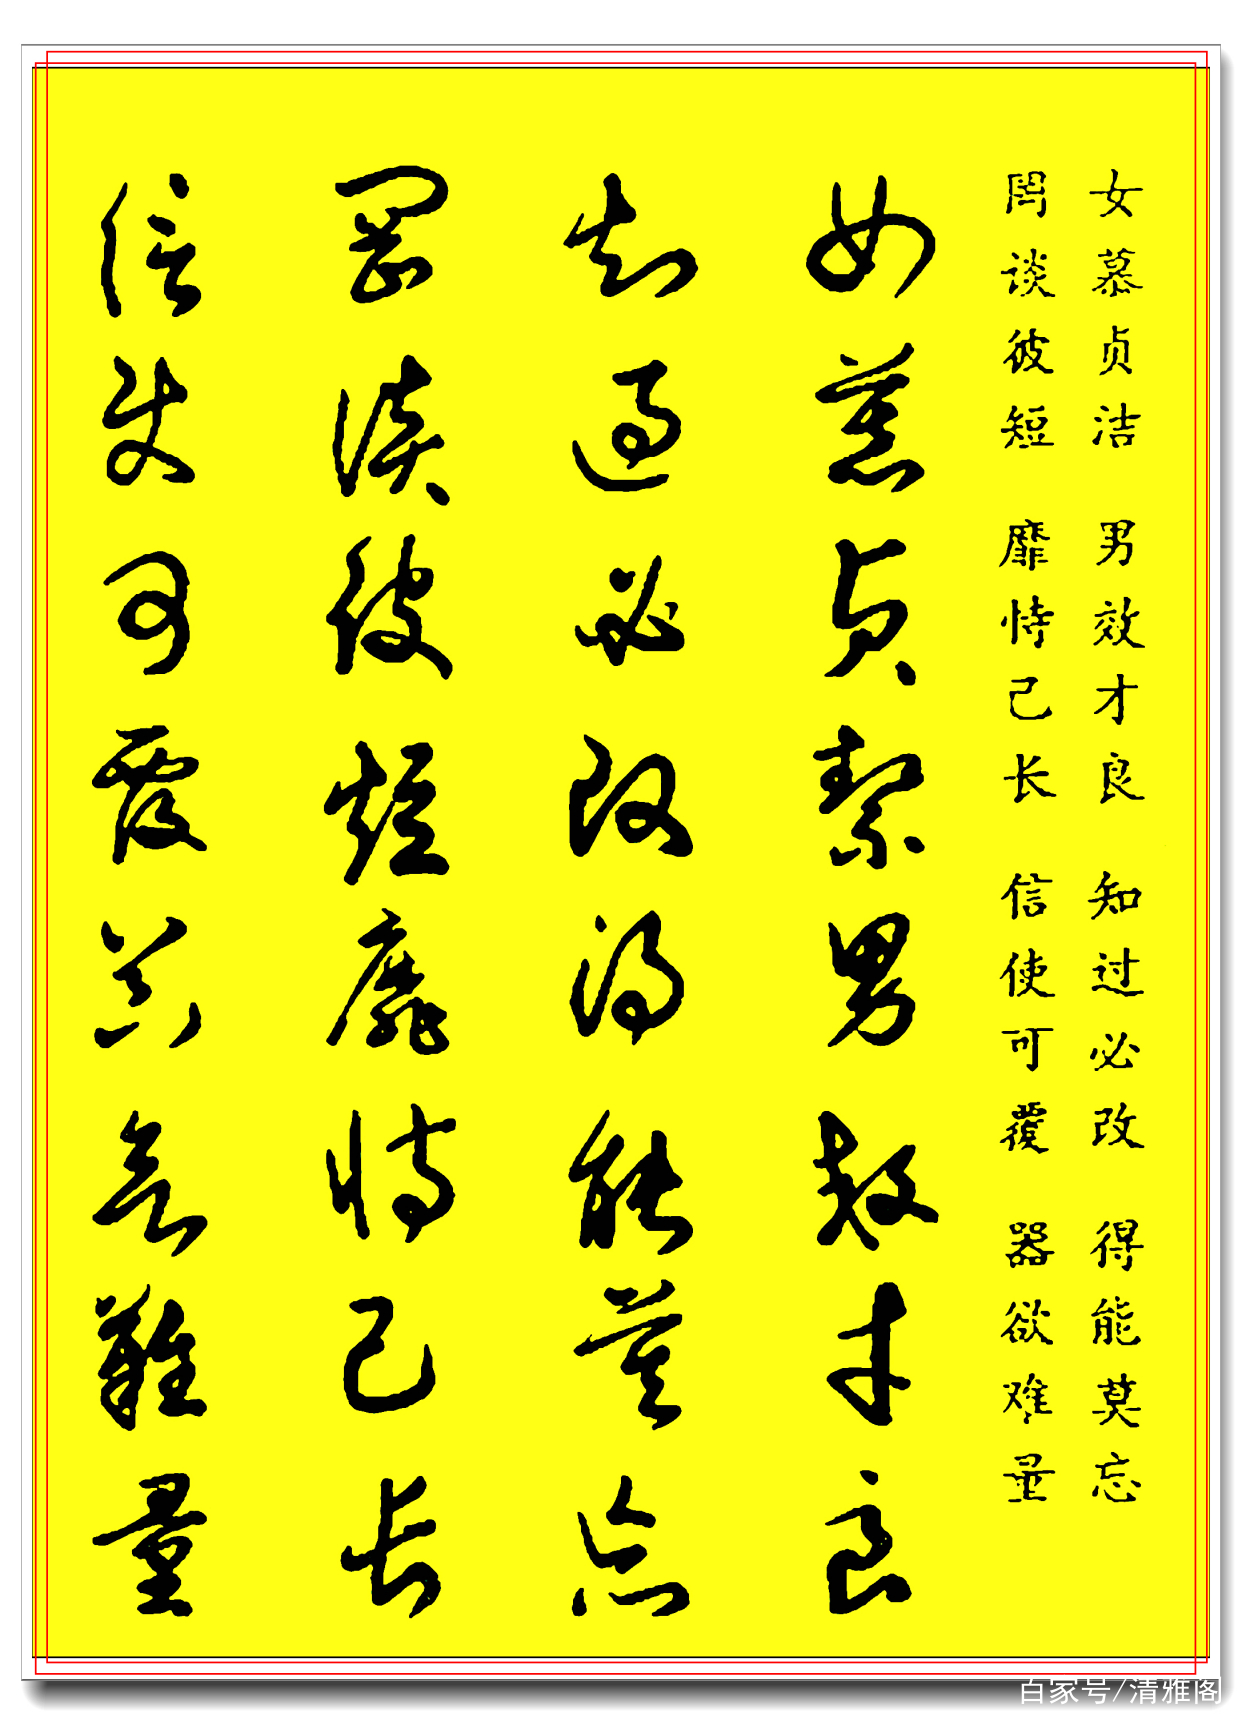 女慕贞洁 男效才良 知过必改 得能莫忘
罔谈彼短 靡恃己长 信使可覆 器欲难量
女慕贞絜男效才良
知过必改得能莫忘
罔谈彼短靡恃己长
信使可覆器欲难量
百家号/清雅阁